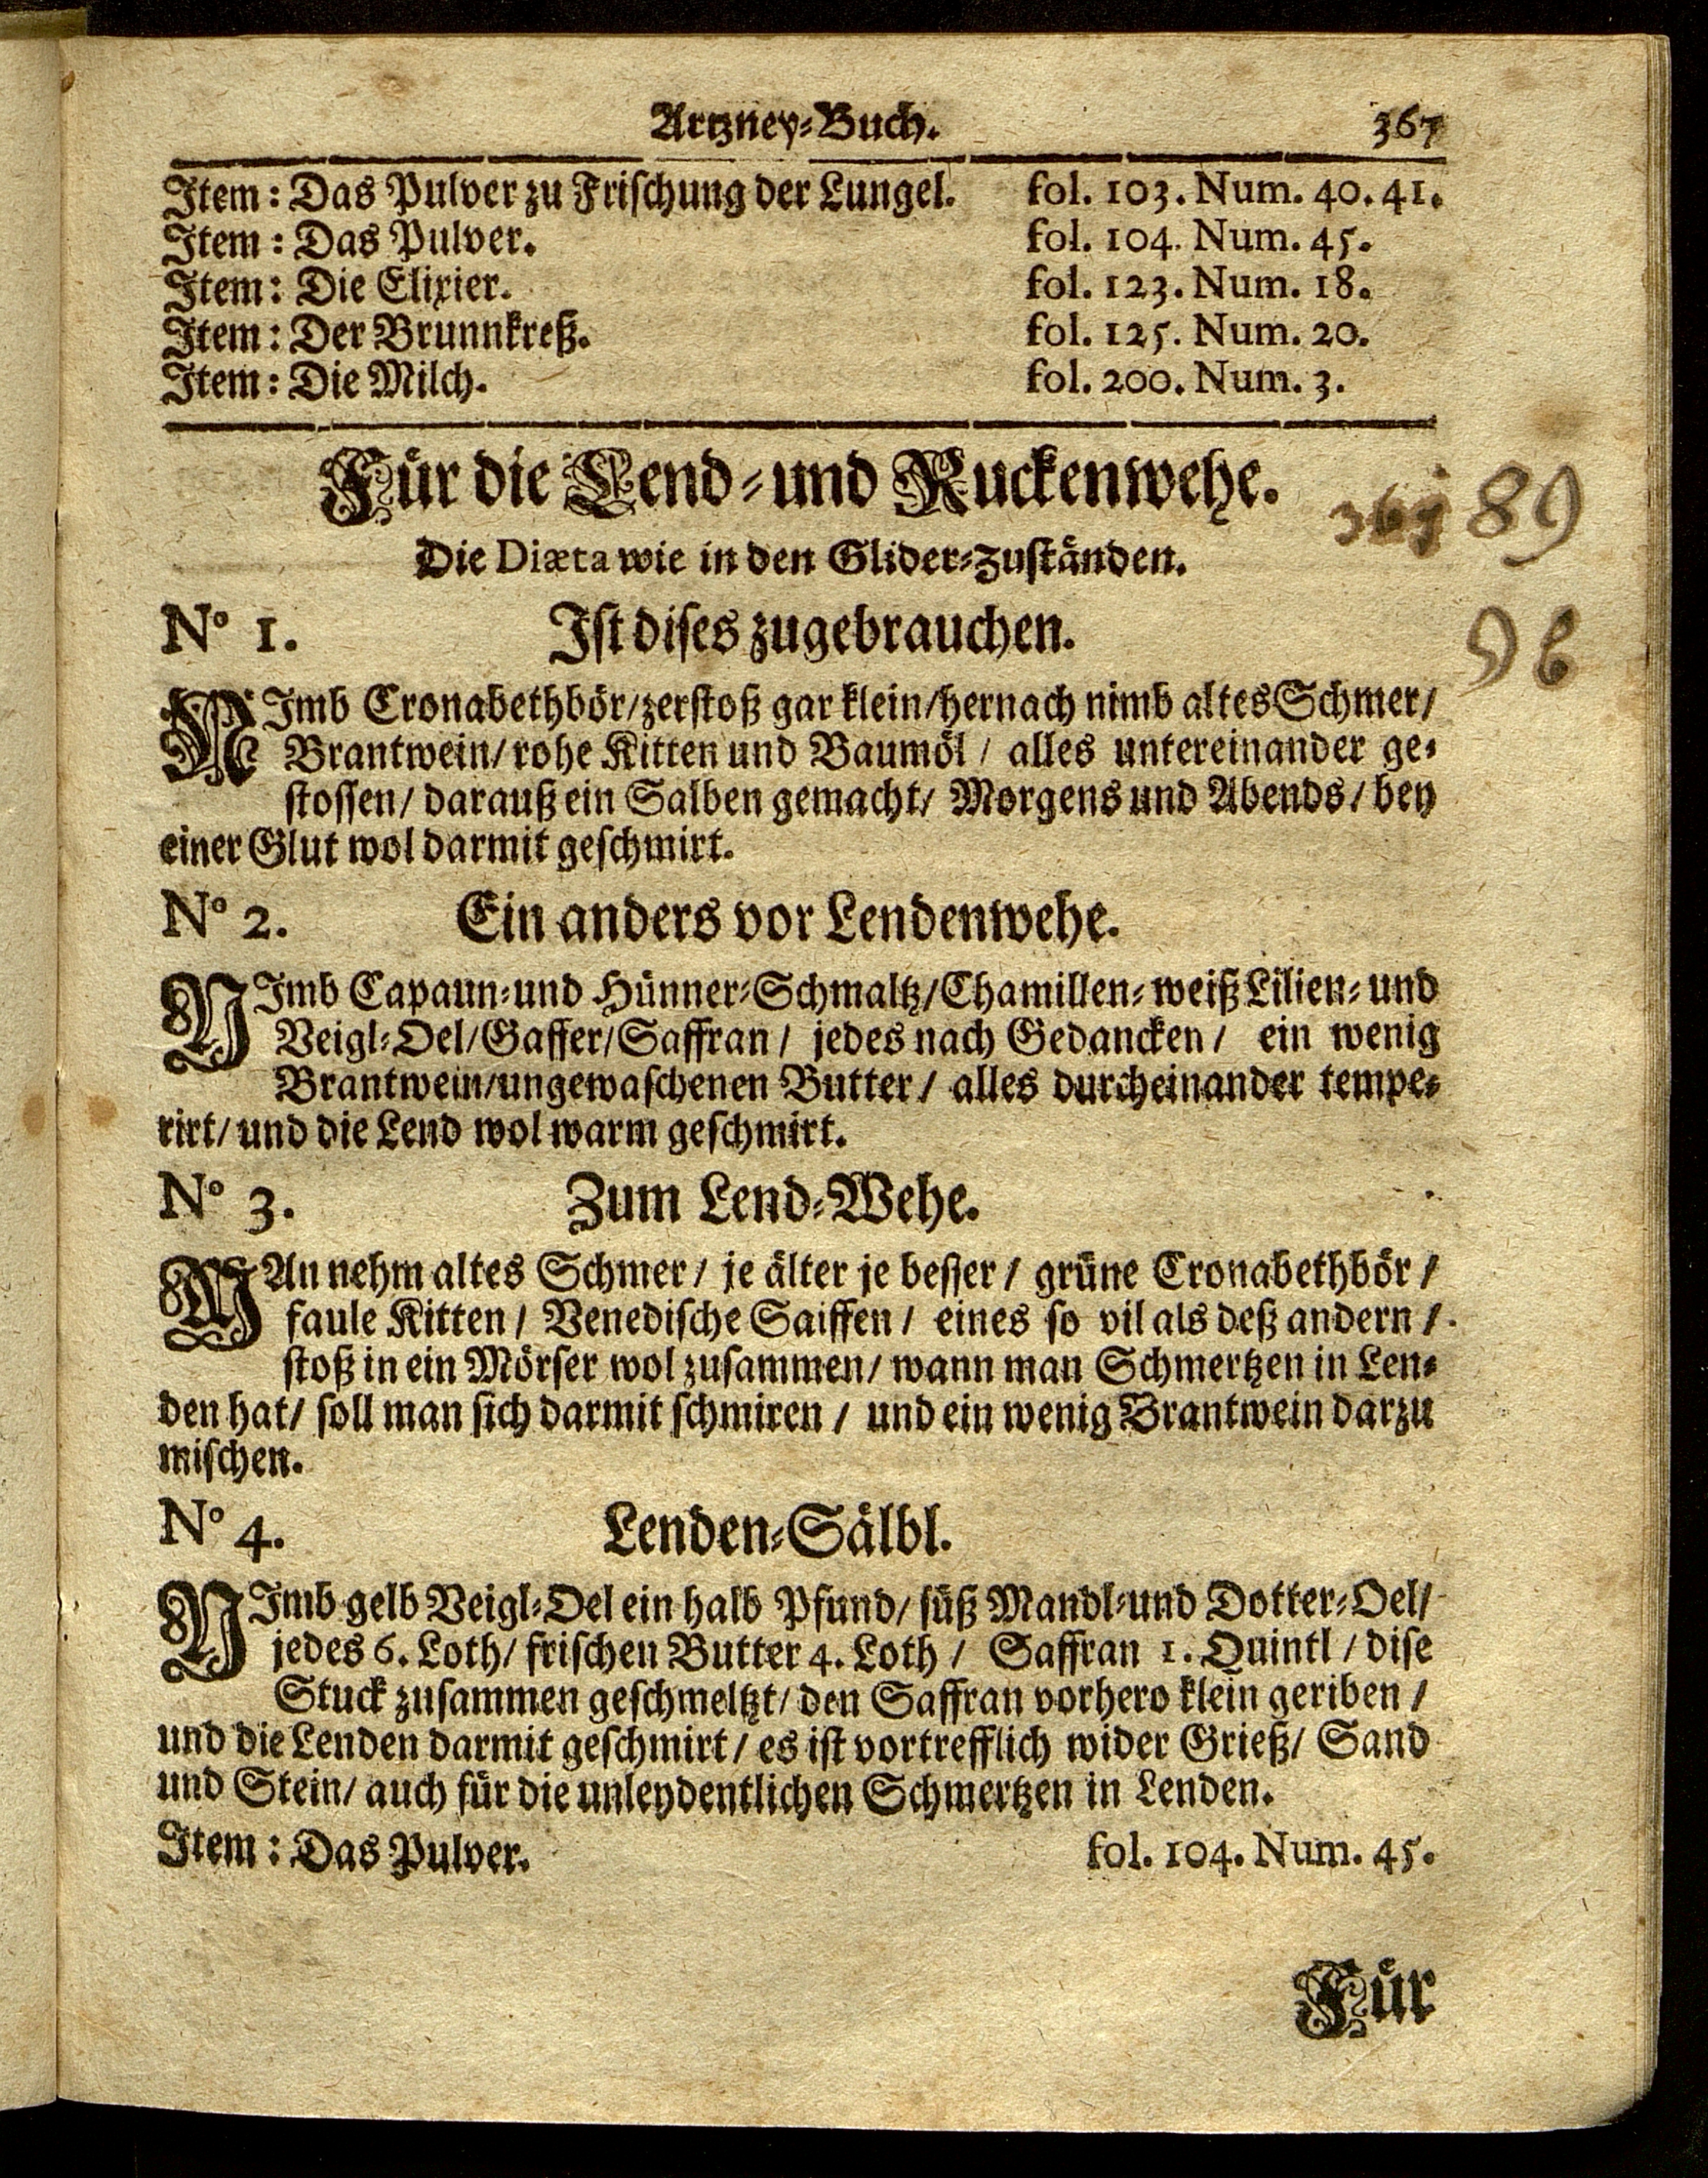 Artzney-Buch. 367
Item: Das Pulver zu Frischung der Lungel. fol. 103. Num. 40. 41.
Item: Das Pulver. fol. 104. Num. 45.
Item: Die Elixier. fol. 123. Num. 18.
Item: Der Brunnkreß. fol. 125. Num. 20.
Item: Die Milch. fol. 200. Num. 3.
Für die Lend- und Ruckenwehe.
89
Die Diæta wie in den Glider-Zuständen.
N° 1. Ist dises zugebrauchen.
NImb Cronabethbör/ zerstoß gar klein/ hernach nimb altes Schmer/
Brantwein/ rohe Kitten und Baumöl / alles untereinander ge-
stossen/ darauß ein Salben gemacht/ Morgens und Abends / bey
einer Glut wol darmit geschmirt.
N° 2. Ein anders vor Lendenwehe.
NImb Capaun- und Hünner-Schmaltz/ Chamillen- weiß Lilien- und
Veigl-Oel/ Gaffer/ Saffran / jedes nach Gedancken / ein wenig
Brantwein/ ungewaschenen Butter / alles durcheinander tempe-
rirt/ und die Lend wol warm geschmirt.
N° 3. Zum Lend-Wehe.
MAn nehm altes Schmer / je älter je besser / grüne Cronabethbör /
faule Kitten / Venedische Saiffen / eines so vil als deß andern /
stoß in ein Mörser wol zusammen/ wann man Schmertzen in Len-
den hat/ soll man sich darmit schmiren / und ein wenig Brantwein darzu
mischen.
N° 4. Lenden-Sälbl.
NImb gelb Veigl-Oel ein halb Pfund/ süß Mandl- und Dotter-Oel/
jedes 6. Loth/ frischen Butter 4. Loth / Saffran 1. Quintl / dise
Stuck zusammen geschmeltzt/ den Saffran vorhero klein geriben /
und die Lenden darmit geschmirt / es ist vortrefflich wider Grieß/ Sand
und Stein/ auch für die unleydentlichen Schmertzen in Lenden.
Item: Das Pulver. fol. 104. Num. 45.
Für